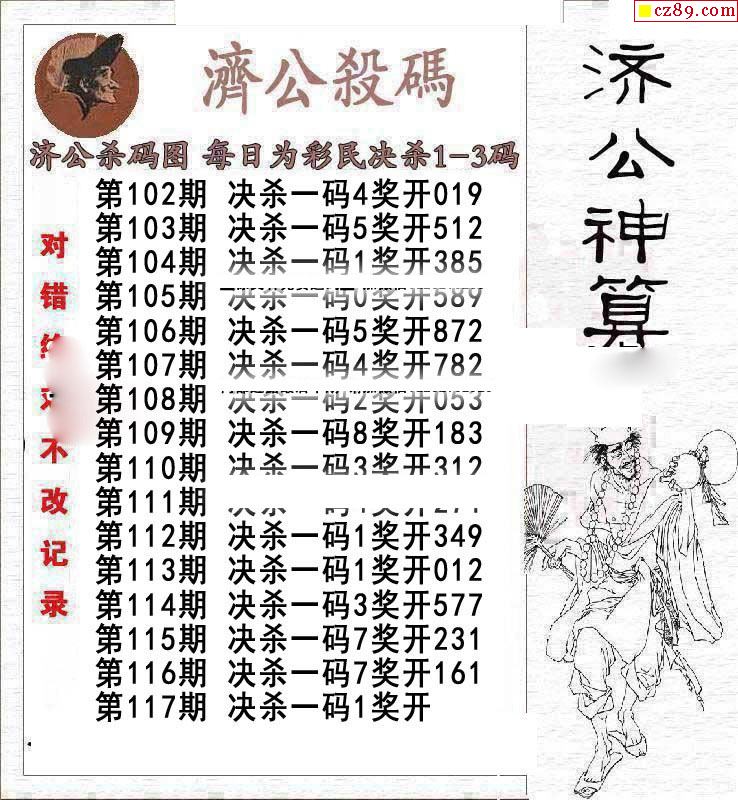 cz89.com
濟公殺碼
济公杀码图 每日为彩民决杀1-3码
第102期 决杀一码4奖开019
第103期 决杀一码5奖开512
第104期 决杀一码1奖开385
第105期 决杀一码0奖开589
第106期 决杀一码5奖开872
第107期 决杀一码4奖开782
第108期 决杀一码2奖开053
第109期 决杀一码8奖开183
第110期 决杀一码3奖开312
第111期
第112期 决杀一码1奖开349
第113期 决杀一码1奖开012
第114期 决杀一码3奖开577
第115期 决杀一码7奖开231
第116期 决杀一码7奖开161
第117期 决杀一码1奖开
对错
不改记录
济公神算